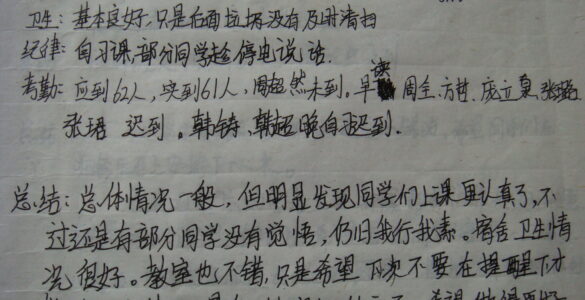 卫生: 基本良好,只是后面垃圾没有及时清扫
纪律: 自习课,部分同学趁停电说话.
考勤: 应到62人,实到61人,周超然未到。早读 周全、方哲、庞立
张珺 迟到。韩铸、韩超晚自习迟到.
总结: 总体情况一般,但明显发现同学们上课更认真了,不
过还是有部分同学没有觉悟,仍旧我行我素。宿舍卫生情
况很好。教室也不错,只是希望下次不要在提醒下才